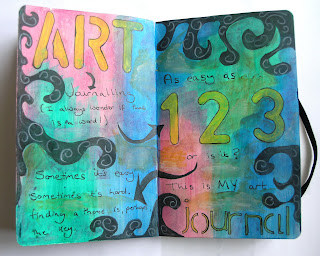 ART
Journalling
(I always wonder if that
is a word!)
Sometimes it's easy
Sometimes it's hard.
finding a theme is, perhaps,
the key.
As easy as
123
or is it?
This is MY art
journal